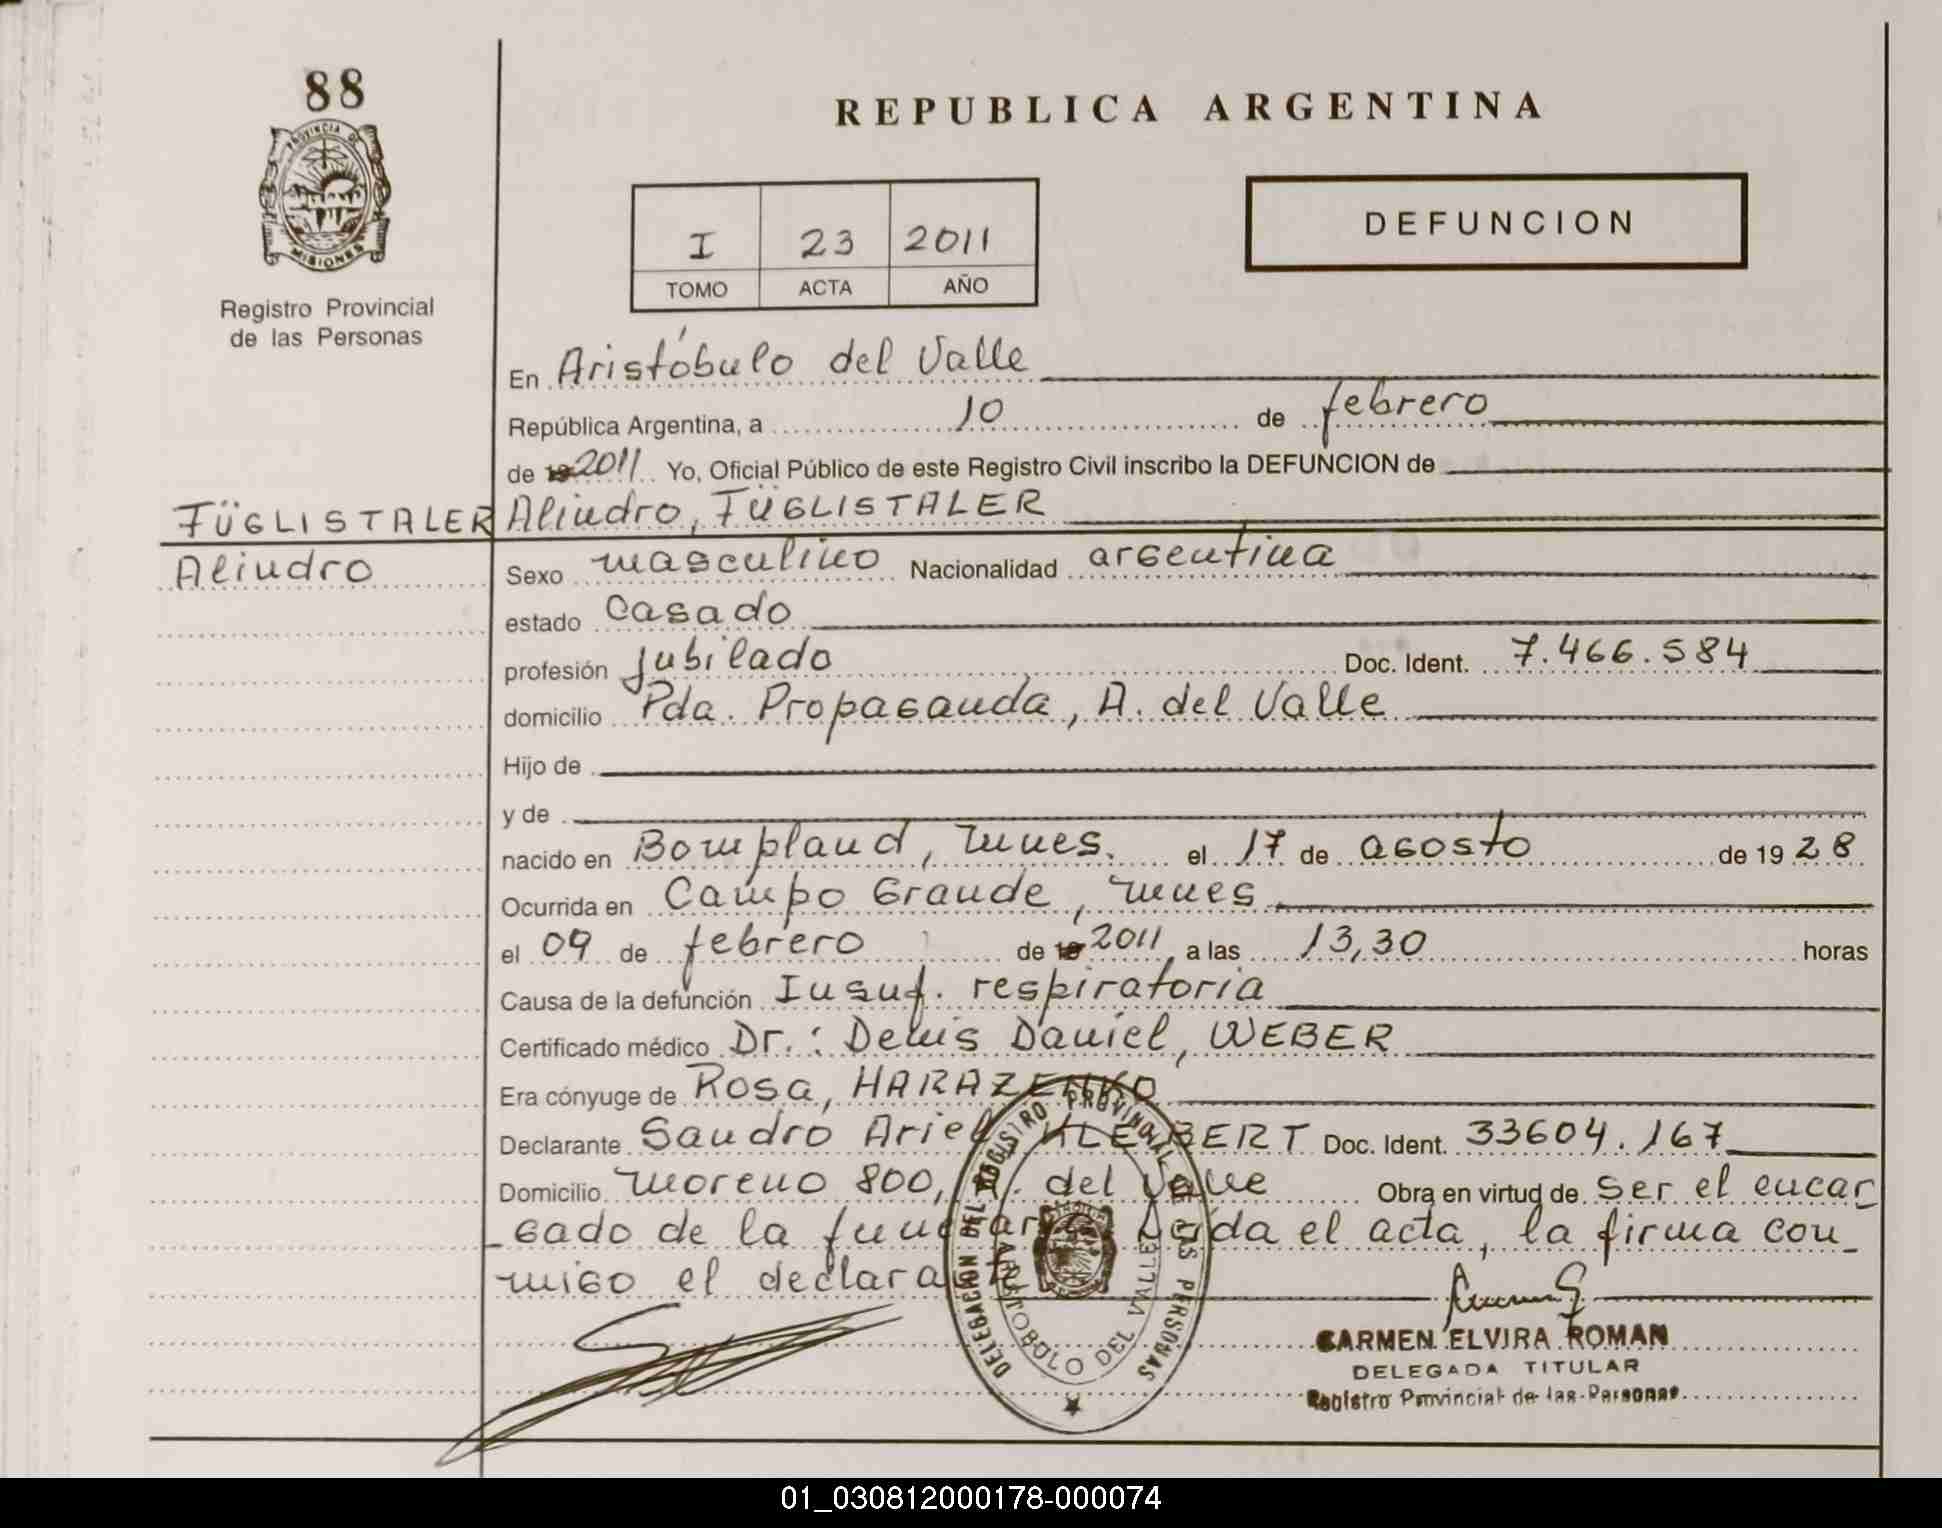 88
PROVINCIA DE
MISIONES
Registro Provincial
de las Personas
REPUBLICA ARGENTINA
I 23 2011
TOMO ACTA AÑO
DEFUNCION
En Aristóbulo del Valle
República Argentina, a 10 de febrero
de 19 2011 Yo, Oficial Público de este Registro Civil inscribo la DEFUNCION de
FÜGLISTALER Alindro, FÜGLISTALER
Alindro
Sexo masculino Nacionalidad argentina
estado Casado
profesión jubilado Doc. Ident. 7.466.584
domicilio Pda. Propaganda, A. del Valle
Hijo de
y de
nacido en Bompland, mnes. el 17 de agosto de 19 28
Ocurrida en Campo Grande, mnes
el 09 de febrero de 19 2011, a las 13,30 horas
Causa de la defunción Insuf. respiratoria
Certificado médico Dr.: Denis Daniel, WEBER
Era cónyuge de Rosa, HARAZENKO
Declarante Sandro Ariel KLEBERT Doc. Ident. 33604.167
Domicilio Moreno 800, A. del Valle Obra en virtud de ser el encar
gado de la funeraria Leida el acta, la firma con_
migo el declarante
DELEGACION DEL REGISTRO PROVINCIAL DE LAS PERSONAS
ARISTOBOLO DEL VALLE
CARMEN ELVIRA ROMAN
DELEGADA TITULAR
Registro Provincial de las Personas
01_030812000178-000074